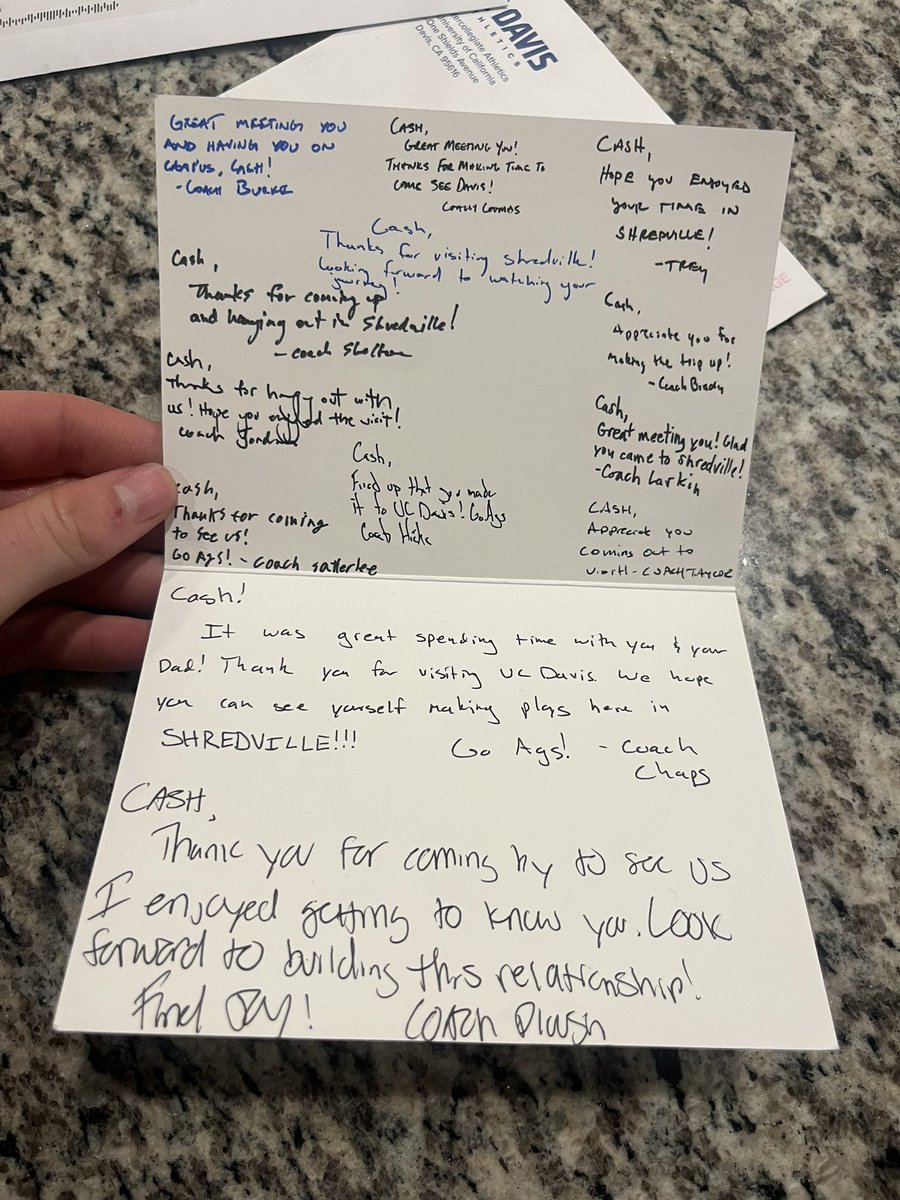 DAVIS
ATHLETICS
Intercollegiate Athletics
University of California
One Shields Avenue
Davis, CA 95616
GREAT MEETING YOU
AND HAVING YOU ON
CAMPUS, CASH!
-COACH BURKE
CASH,
GREAT MEETING YOU!
THANKS FOR MAKING TIME TO
COME SEE DAVIS!
COACH COOMBS
CASH,
HOPE YOU ENJOYED
YOUR TIME IN
SHREDVILLE!
-TREY
Cash,
Thanks for visiting shredville!
Looking forward to watching your
journey!
Cash,
Thanks for coming up
and hanging out in Shredville!
- coach
Cash,
Appreciate you for
making the trip up!
-Coach Brady
Cash,
Thanks for hanging out with
us! Hope you enjoyed the visit!
Coach Jordan
Cash,
Great meeting you! Glad
you came to Shredville!
-Coach Larkin
Cash,
Fired up that you made
it to UC Davis! Go Ags
Coach Hicks
Cash,
Thanks for coming
to see us!
Go Ags! - Coach Satterlee
CASH,
Appreciate you
coming out to
visit! - COACH TAYLOR
Cash!
It was great spending time with you & your
Dad! Thank you for visiting UC Davis. We hope
you can see yourself making plays here in
SHREDVILLE!!!
Go Ags! - Coach
Chaps
CASH,
Thank you for coming by to see us
I enjoyed getting to know you. Look
forward to building this relationship!
Find Joy! COACH Plough